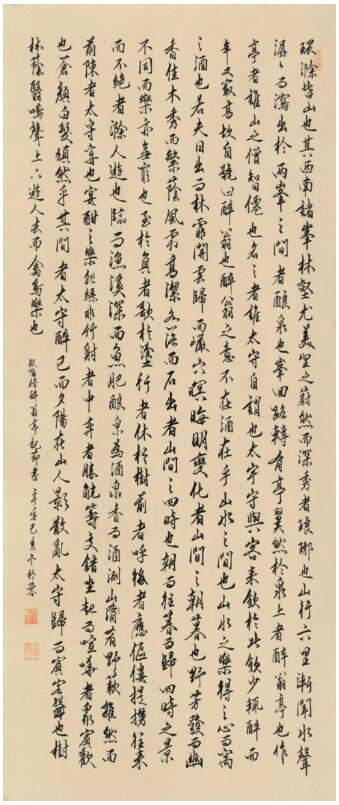 環滁皆山也其西南諸峯林壑尤美望之蔚然而深秀者琅琊也山行六里漸聞水聲
潺々而瀉出於兩峯之間者釀泉也峯回路轉有亭翼然於泉上者醉翁亭也作
亭者誰山之僧智僊也名之者誰太守自謂也太守與客來飲於此飲少輒醉而
年又最高故自號曰醉翁也醉翁之意不在酒在乎山水之間也山水之樂得之心而寓
之酒也若夫日出而林霏開雲歸而巖穴暝晦明變化者山間之朝暮也野芳發而幽
香佳木秀而繁蔭風霜高潔水落而石出者山間之四時也朝而往暮而歸四時之景
不同而樂亦無窮也至於負者歌於塗行者休於樹前者呼後者應傴僂提攜往來
而不絕者滁人遊也臨而漁溪深而魚肥釀泉為酒泉香而酒洌山肴野蔌雜然而
前陳者太守宴也宴酣之樂非絲非竹射者中弈者勝觥籌交錯坐起而喧嘩者衆賓歡
也蒼顏白髮頹然乎其間者太守醉已而夕陽在山人影散亂太守歸而賓客從也樹
林蔭翳鳴聲上下遊人去而禽鳥樂也
歐陽修醉翁亭記節書 己亥冬於蓉